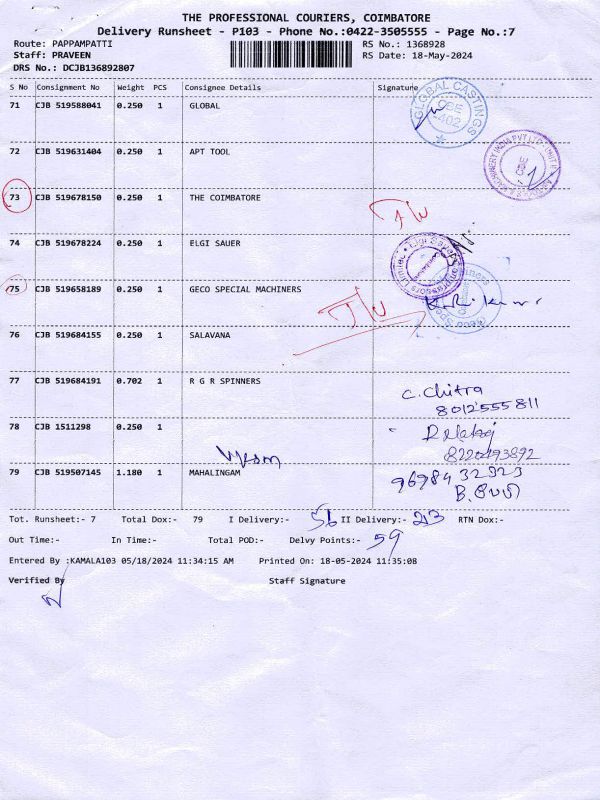 THE PROFESSIONAL COURIERS, COIMBATORE
Delivery Runsheet - P103 - Phone No.:0422-3505555 - Page No.:7
Route: PAPPAMPATTI RS No.: 1368928
Staff: PRAVEEN RS Date: 18-May-2024
DRS No.: DCJB136892807
S No Consignment No Weight PCS Consignee Details Signature
71 CJB 519588041 0.250 1 GLOBAL
GLOBAL CASTINGS
72 CJB 519631404 0.250 1 APT TOOL
73 CJB 519678150 0.250 1 THE COIMBATORE
74 CJB 519678224 0.250 1 ELGI SAUER
75 CJB 519658189 0.250 1 GECO SPECIAL MACHINERS
76 CJB 519684155 0.250 1 SALAVANA
77 CJB 519684191 0.702 1 R G R SPINNERS
C. Chitra
8012555811
78 CJB 1511298 0.250 1
79 CJB 519507145 1.180 1 MAHALINGAM
96984 32323
Tot. Runsheet:- 7 Total Dox:- 79 I Delivery:- 56 II Delivery:- 23 RTN Dox:-
Out Time:- In Time:- Total POD:- Delvy Points:- 59
Entered By :KAMALA103 05/18/2024 11:34:15 AM Printed On: 18-05-2024 11:35:08
Verified By Staff Signature